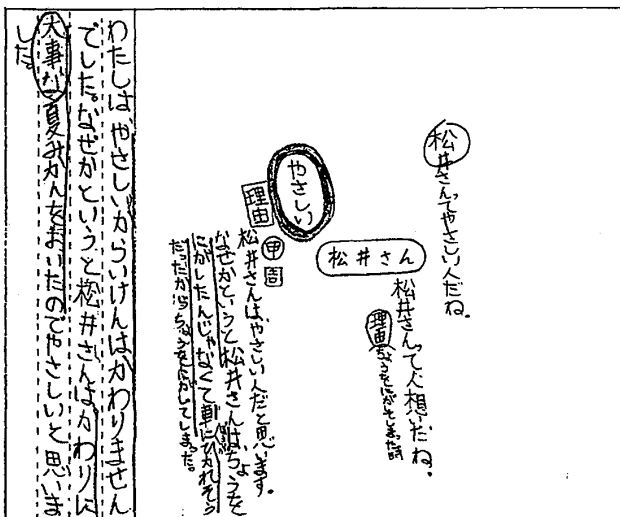 松井さんってやさしい人だね。
松井さん
松井さんって人想いだね。
理由 ちょうをにがしてしまった時
やさしい
理由
甲
松井さんはやさしい人だと思います。
なぜかというと松井さんはちょうを
にがしたんじゃなくて車にひかれそう
だったからちょうをにがしてしまった。
わたしは やさしいからいけんはかわりません
でした。なぜかというと松井さんはかわりに
大事な夏みかんをおいたのでやさしいと思いま
した。